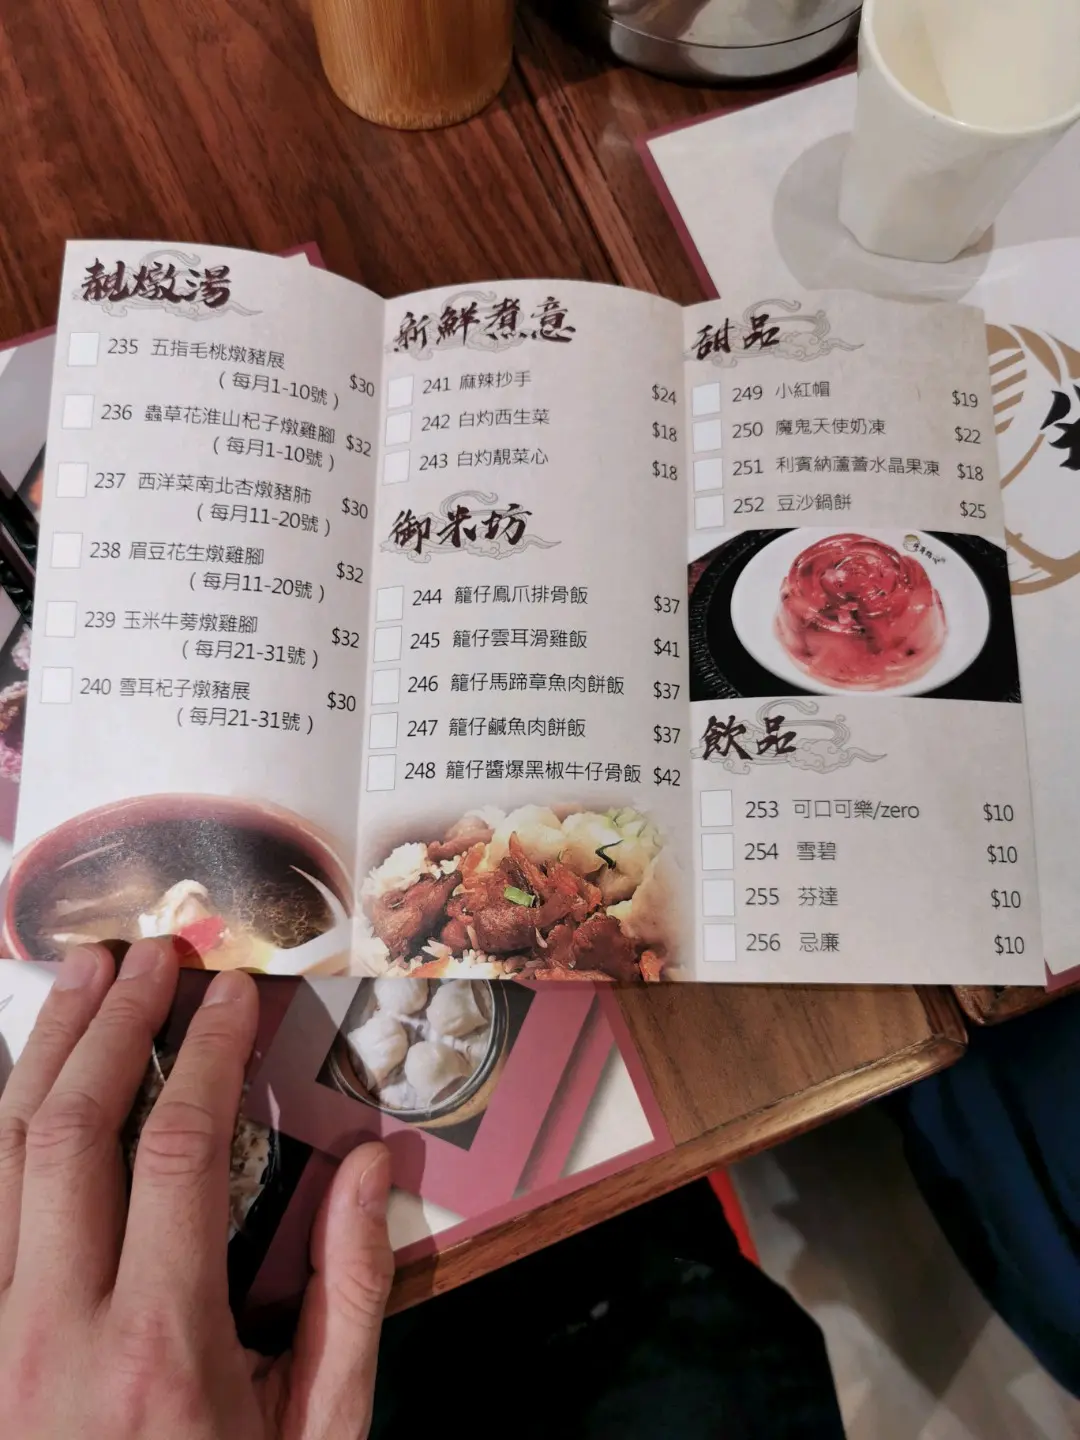 靚燉湯
235 五指毛桃燉豬展 $30
(每月1-10號)
236 蟲草花淮山杞子燉雞腳 $32
(每月1-10號)
237 西洋菜南北杏燉豬肺 $30
(每月11-20號)
238 眉豆花生燉雞腳 $32
(每月11-20號)
239 玉米牛蒡燉雞腳 $32
(每月21-31號)
240 雪耳杞子燉豬展 $30
(每月21-31號)
新鮮煮意
241 麻辣抄手 $24
242 白灼西生菜 $18
243 白灼靚菜心 $18
御米坊
244 籠仔鳳爪排骨飯 $37
245 籠仔雲耳滑雞飯 $41
246 籠仔馬蹄章魚肉餅飯 $37
247 籠仔鹹魚肉餅飯 $37
248 籠仔醬爆黑椒牛仔骨飯 $42
甜品
249 小紅帽 $19
250 魔鬼天使奶凍 $22
251 利賓納蘆薈水晶果凍 $18
252 豆沙鍋餅 $25
飲品
253 可口可樂/zero $10
254 雪碧 $10
255 芬達 $10
256 忌廉 $10